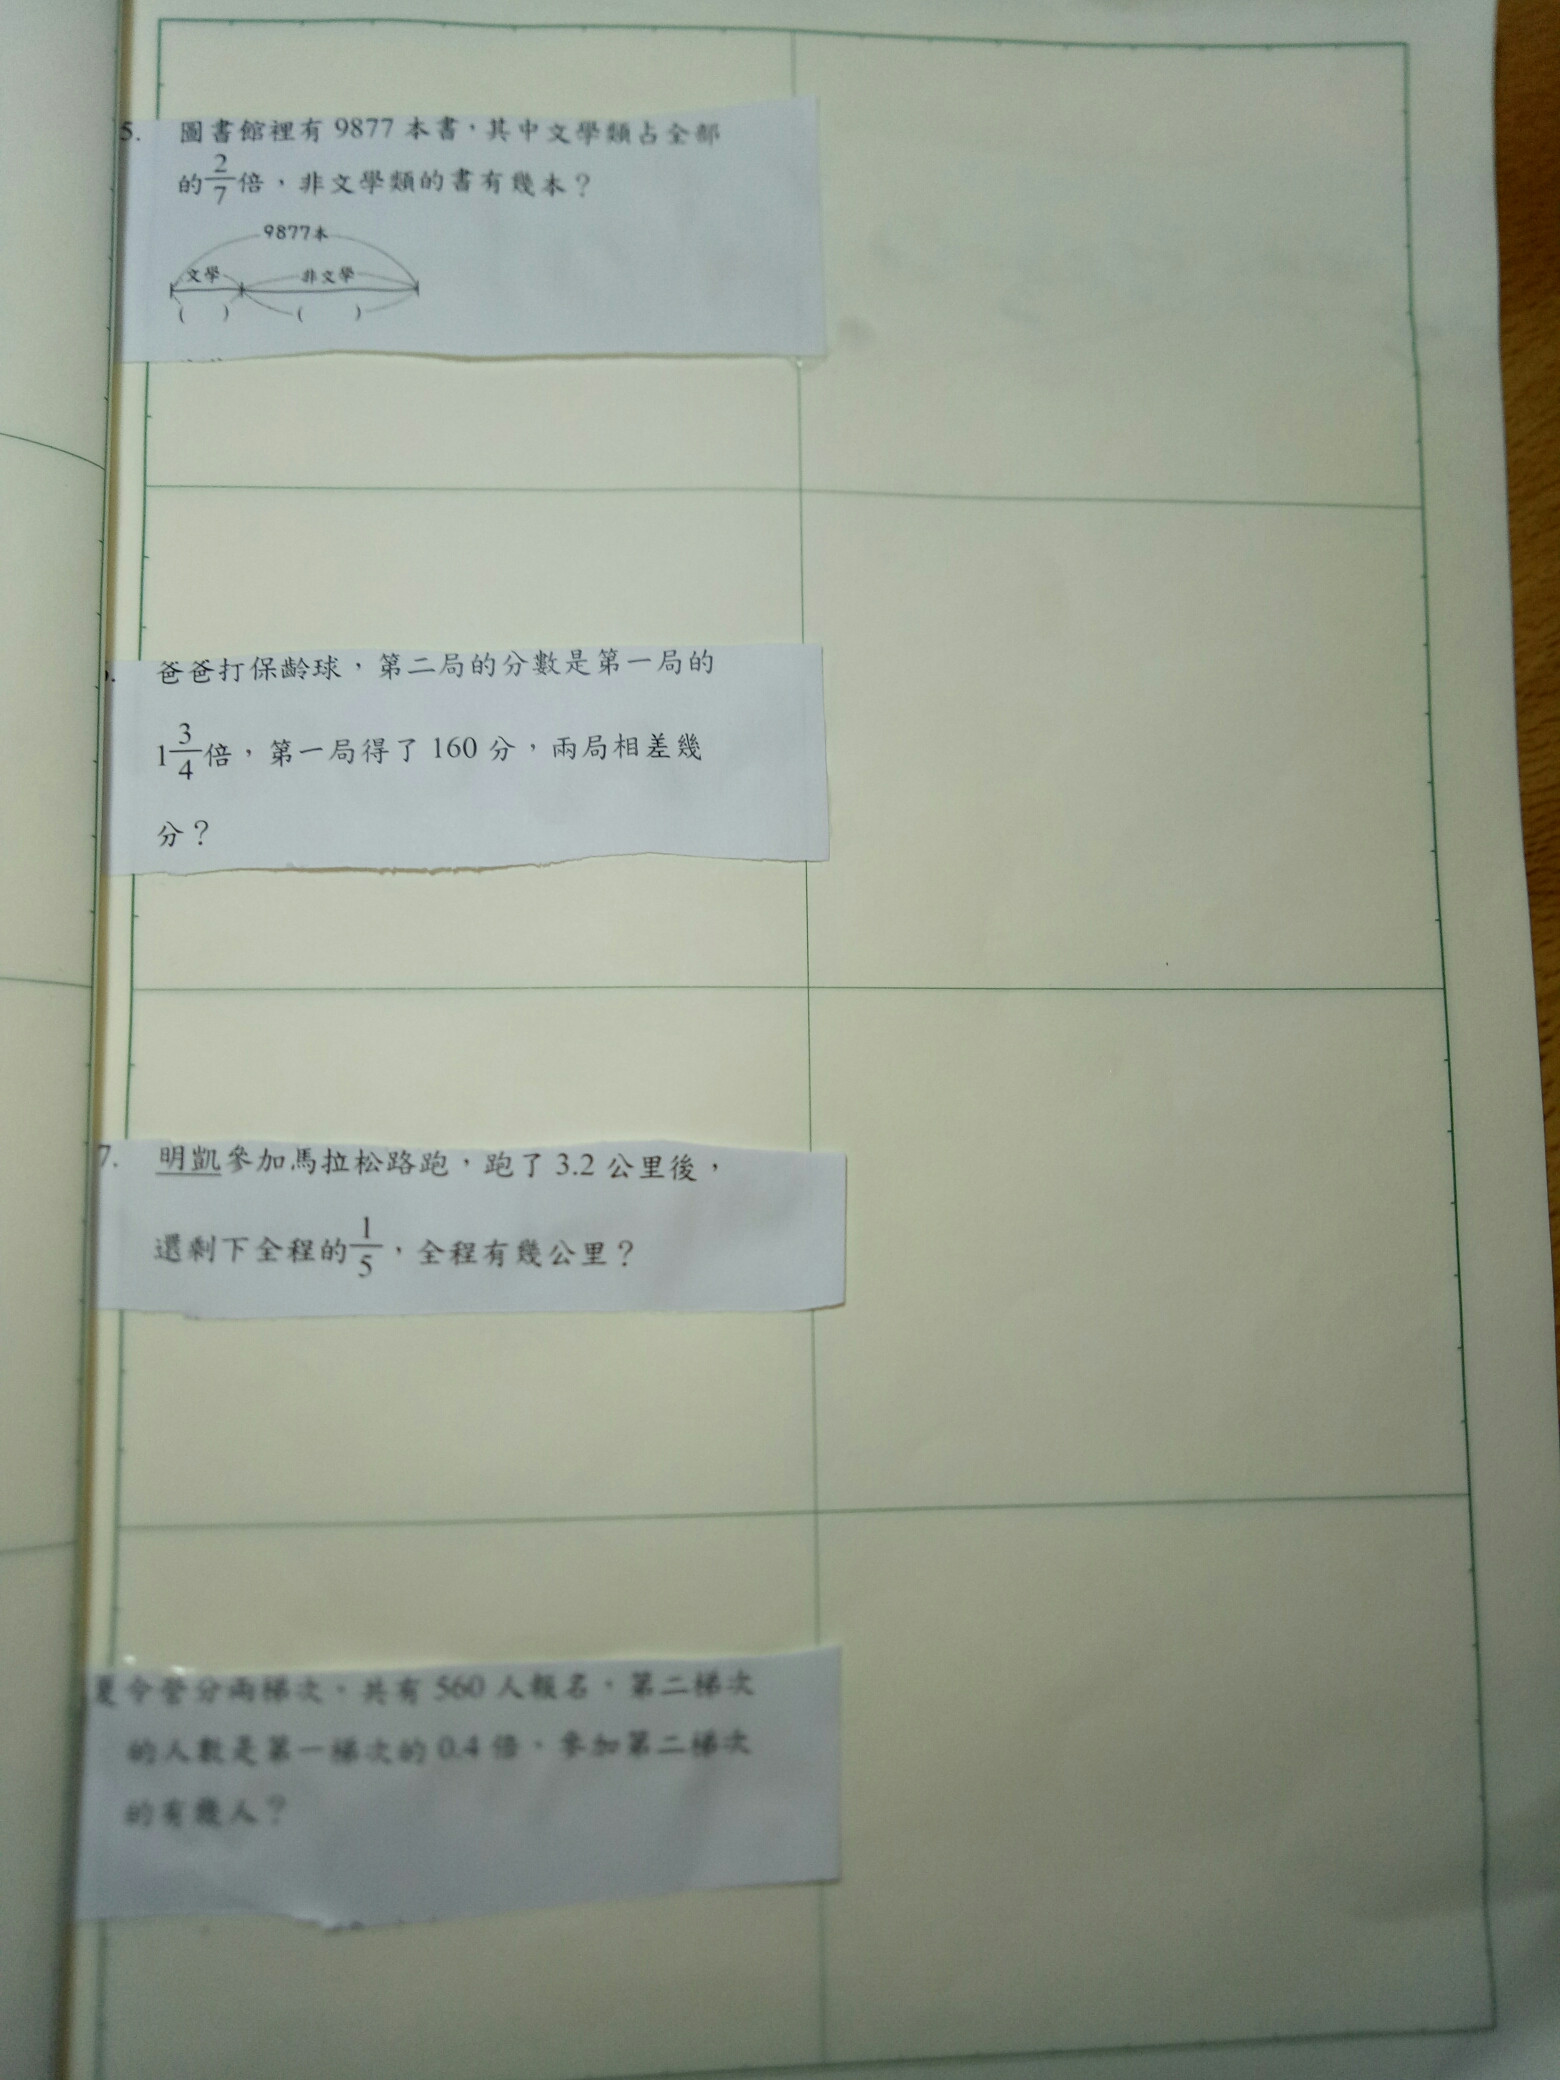 5. 圖書館裡有 9877 本書，其中文學類占全部
的2/7倍，非文學類的書有幾本？
9877本
文學 非文學
( ) ( )
爸爸打保齡球，第二局的分數是第一局的
1 3/4倍，第一局得了 160 分，兩局相差幾
分？
7. 明凱參加馬拉松路跑，跑了 3.2 公里後，
還剩下全程的1/5，全程有幾公里？
夏令營分兩梯次，共有 560 人報名，第二梯次
的人數是第一梯次的 0.4 倍，參加第二梯次
的有幾人？